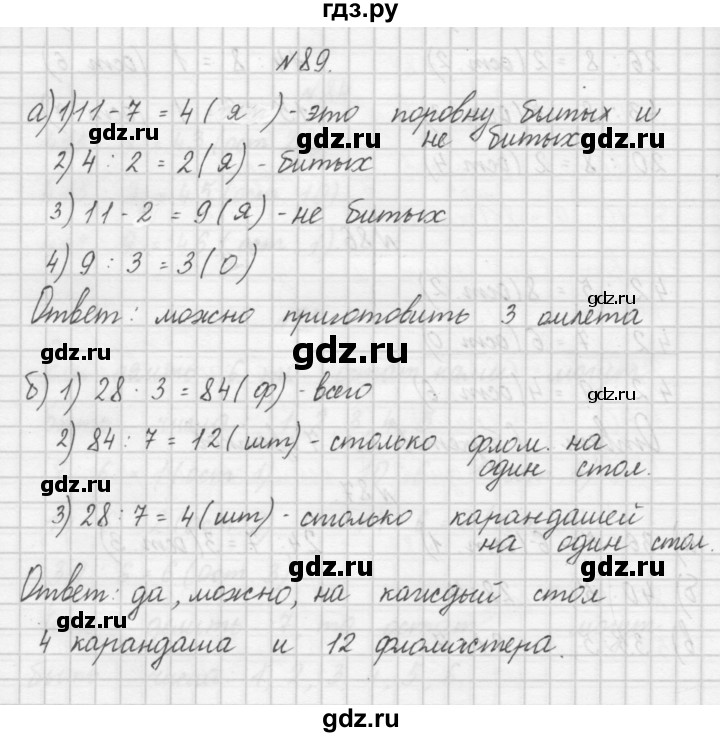 гдз.ру
№89.
а) 1) 11 - 7 = 4 ( я ) - это поровну битых и
не битых
gdz.ru gdz.ru
2) 4 : 2 = 2 ( Я ) - битых
3) 11 - 2 = 9 ( Я ) - не битых
gdz.ru
4) 9 : 3 = 3 ( О )
gdz.ru
Ответ: можно приготовить 3 омлета
gdz.ru gdz.ru
б) 1) 28 · 3 = 84 ( ф ) - всего
gdz.ru
2) 84 : 7 = 12 ( шт ) - столько флом. на
один стол.
gdz.ru
3) 28 : 7 = 4 ( шт ) - столько карандашей
на один стол.
gdz.ru gdz.ru
Ответ: да, можно, на каждый стол
gdz.ru
4 карандаша и 12 фломастера.
gdz.ru
gdz.ru